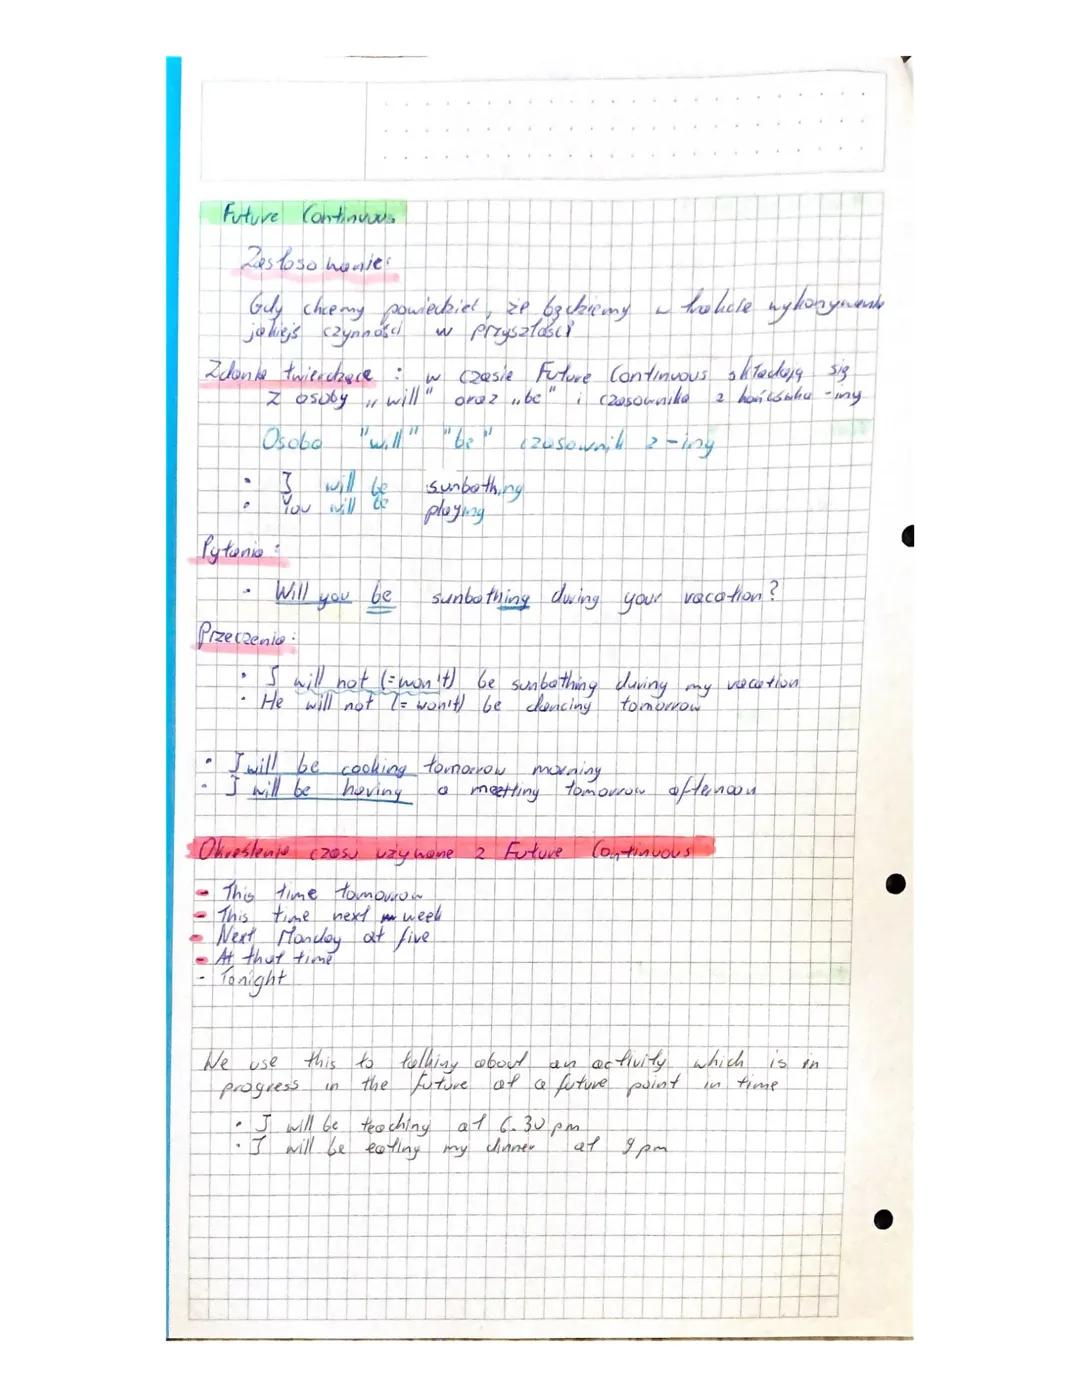 Future Continuous
Zastosowanie:
Gdy chcemy powiedzieć, że będziemy w trakcie wykonywania
jakiejś czynności w przyszłości
Zdania twierdzące : w czasie Future Continuous składają się
z osoby „will" oraz „be" i czasownika z końcówką -ing
Osoba "will" "be" czasownik z -ing
• I will be sunbathing
• You will be playing
Pytania:
• Will you be sunbathing during your vacation?
Przeczenia:
• I will not (=won't) be sunbathing during my vacation
• He will not (= won't) be dancing tomorrow
• I will be cooking tomorrow morning
• I will be having a meetting tomorrow afternoon
Określenia czasu używane z Future Continuous
- This time tomorrow
- This time next week
- Next Monday at five
- At that time
- Tonight
We use this to talking about an activity which is in
progress in the future at a future point in time
• I will be teaching at 6.30 pm
• I will be eating my dinner at 9 pm